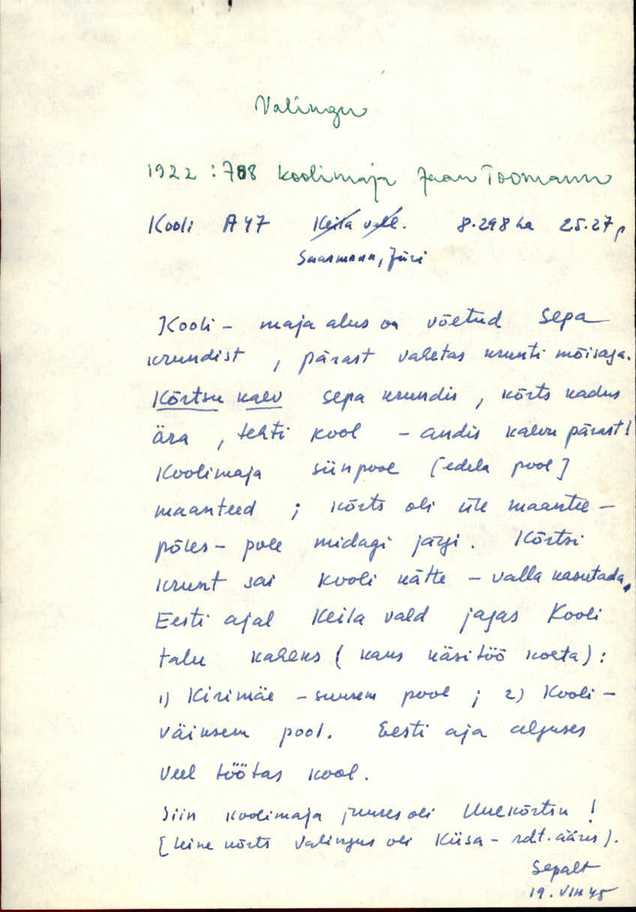 Valingu
1922 : 788 koolimaja Jaan Toomann
Kooli A47 Keila vall. 8.298 ha 25.27 p
Saarmann, Jüri
Kooli – maja alus on võetud Sepa
krundist, pärast vahetas krunti mõisaga.
Kõrtsu kaev sepa krundis, kõrts kadus
ära, tehti kool – andis kaevu pärast!
Koolimaja siinpool [edela pool]
maanteed ; kõrts oli üle maantee –
põles – pole midagi järgi. Kõrtsi
krunt sai kooli kätte – valla kasutada.
Eesti ajal Keila vald jagas Kooli
talu kaheks ( kaks käsitöö kohta) :
1) Kirimäe – suurem pool ; 2) Kooli –
väiksem pool. Eesti aja alguses
veel töötas kool.
Siin koolimaja juures oli Uuekõrtsu !
[teine kõrts Valingus oli Kiisa – rdt. ääres ).
Sepalt
19. VIII 45